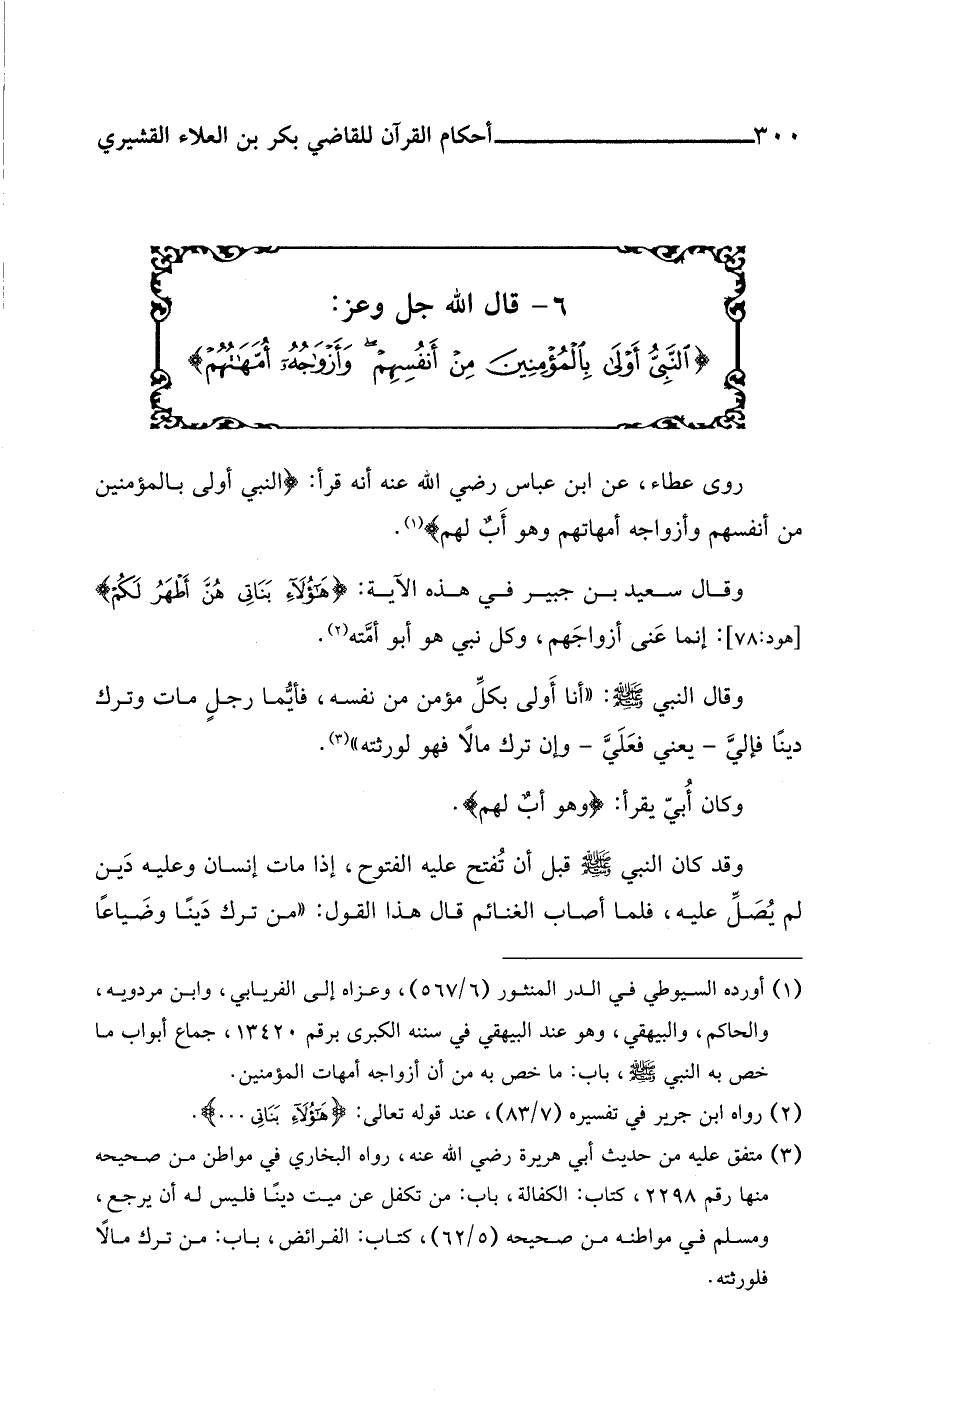 ٣٠٠ أحكام القرآن للقاضي بكر بن العلاء القشيري
٦- قال الله جل وعز:
﴿ٱلنَّبِيُّ أَوۡلَىٰ بِٱلۡمُؤۡمِنِينَ مِنۡ أَنفُسِهِمۡۖ وَأَزۡوَٰجُهُۥٓ أُمَّهَٰتُهُمۡ﴾
روى عطاء، عن ابن عباس رضي الله عنه أنه قرأ: ﴿النبي أولى بالمؤمنين
من أنفسهم وأزواجه أمهاتهم وهو أَبٌ لهم﴾(١).
وقال سعيد بن جبير في هذه الآية: ﴿هَٰٓؤُلَآءِ بَنَاتِي هُنَّ أَطۡهَرُ لَكُمۡ﴾
[هود:٧٨]: إنما عَنى أزواجَهم، وكل نبي هو أبو أمَّته(٢).
وقال النبي ﷺ: «أنا أَولى بكلِّ مؤمن من نفسه، فأيُّما رجلٍ مات وترك
دينًا فإليَّ - يعني فعَلَيَّ - وإن ترك مالًا فهو لورثته»(٣).
وكان أُبيّ يقرأ: ﴿وهو أبٌ لهم﴾.
وقد كان النبي ﷺ قبل أن تُفتح عليه الفتوح، إذا مات إنسان وعليه دَين
لم يُصَلِّ عليه، فلما أصاب الغنائم قال هذا القول: «من ترك دَينًا وضَياعًا
(١) أورده السيوطي في الدر المنثور (٥٦٧/٦)، وعزاه إلى الفريابي، وابن مردويه،
والحاكم، والبيهقي، وهو عند البيهقي في سننه الكبرى برقم ١٣٤٢٠، جماع أبواب ما
خص به النبي ﷺ، باب: ما خص به من أن أزواجه أمهات المؤمنين.
(٢) رواه ابن جرير في تفسيره (٨٣/٧)، عند قوله تعالى: ﴿هَٰٓؤُلَآءِ بَنَاتِي ...﴾.
(٣) متفق عليه من حديث أبي هريرة رضي الله عنه، رواه البخاري في مواطن من صحيحه
منها رقم ٢٢٩٨، كتاب: الكفالة، باب: من تكفل عن ميت دينًا فليس له أن يرجع،
ومسلم في مواطنه من صحيحه (٦٢/٥)، كتاب: الفرائض، باب: من ترك مالًا
فلورثته.